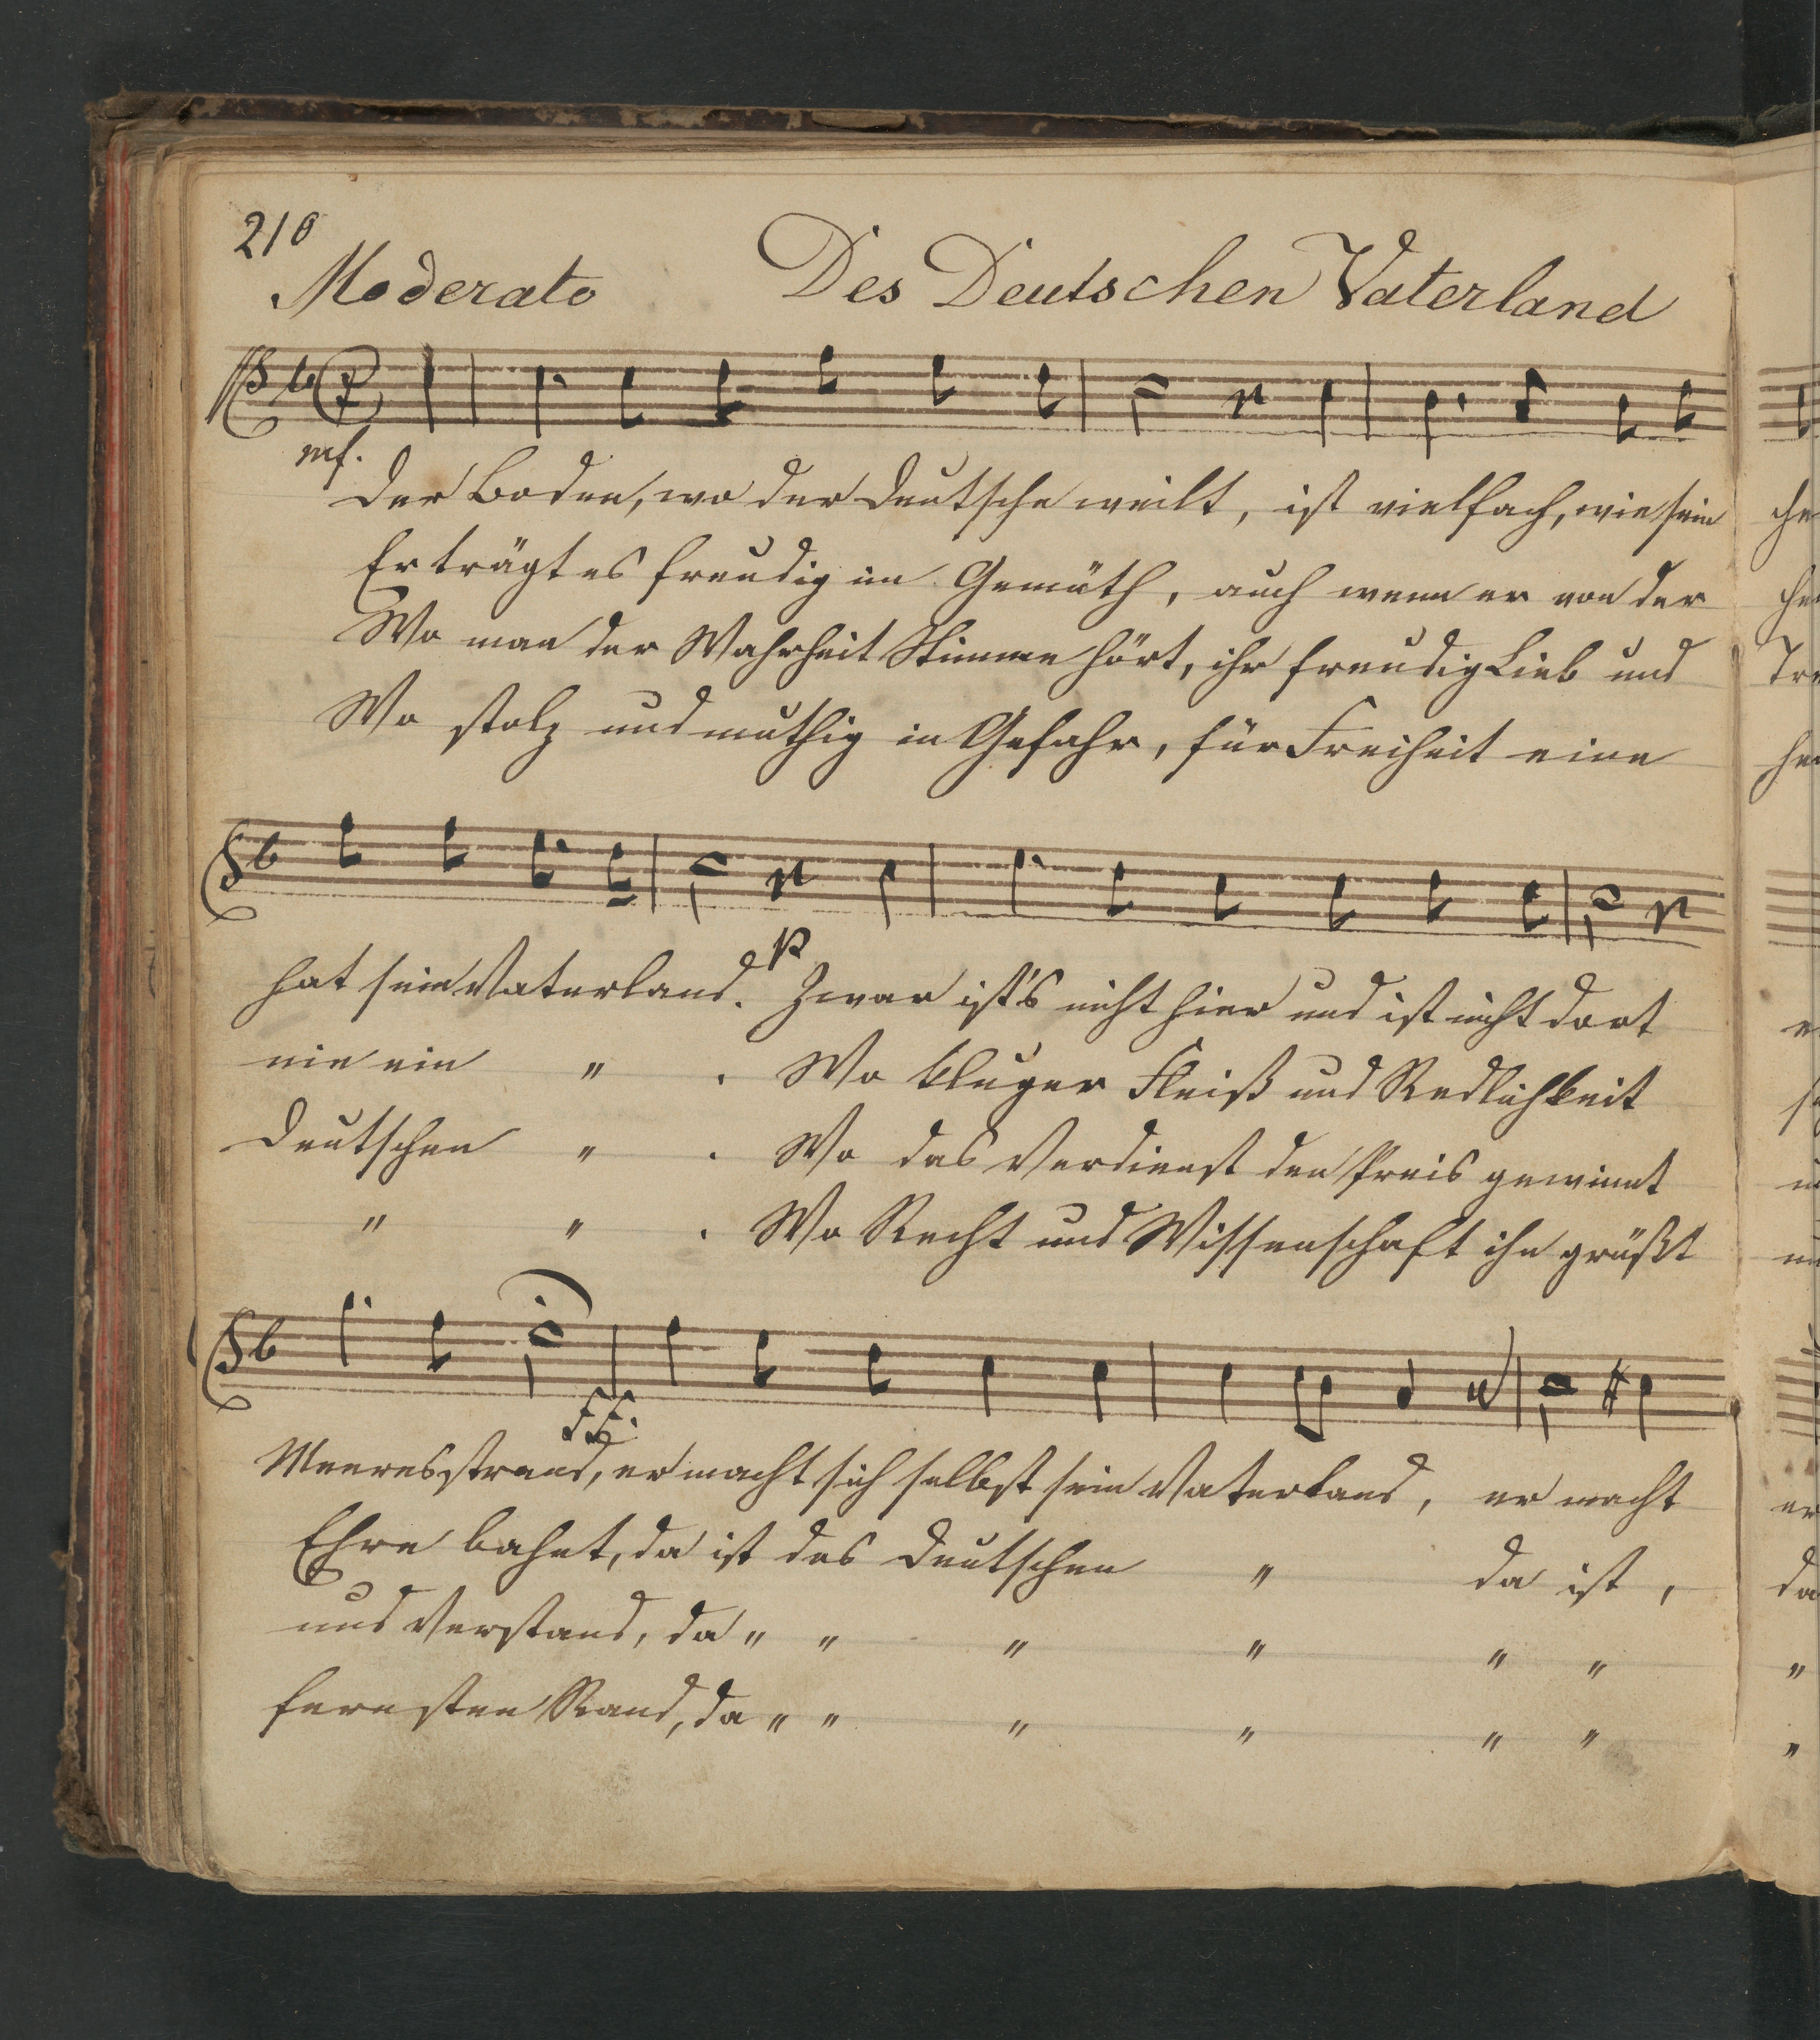 210
Moderato Des Deutschen Vaterland
mf.
Der Boden, wo der Deutsche weilt, ist vielfach, wie sein
Er trägt es freudig im Gemüth, auch wenn er von der
Wo man der Wahrheit Stimme hört, ihr freudig Lieb und
Wo stolz und muthig in Gefahr, für Freiheit eine
p
hat sein Vaterland. Zwar ist's nicht hier und ist nicht dort
nie ein " . Wo kluger Fleiß und Redlichkeit
Deutschen " . Wo das Verdienst den Preis gewinnt
" " . Wo Recht und Wissenschaft ihn grüßt
ff.
Meeresstrand, er macht sich selbst sein Vaterland, er macht
Ehre bahnt, da ist des Deutschen " da ist,
und Verstand, da " " " " " "
fernsten Rand, da " " " " " "